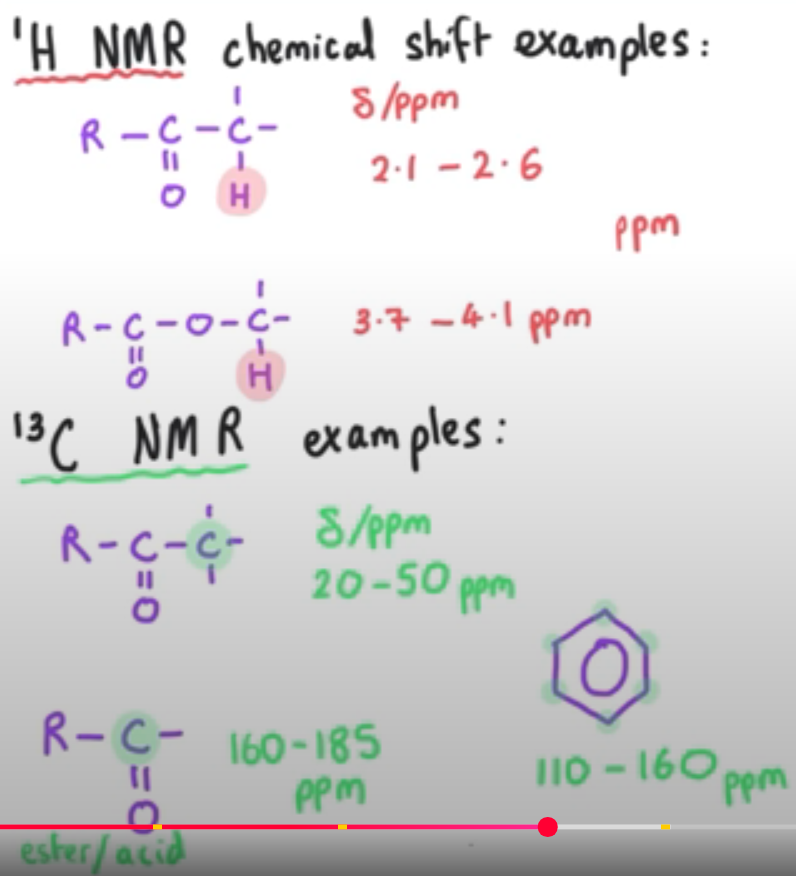 ¹H NMR chemical shift examples:
δ/ppm
R – C – C –
O H
2.1 – 2.6
ppm
R – C – O – C –
O H
3.7 – 4.1 ppm
¹³C NMR examples:
R – C – C –
O
δ/ppm
20 – 50 ppm
R – C –
O
160 – 185
ppm
110 – 160 ppm
ester/acid